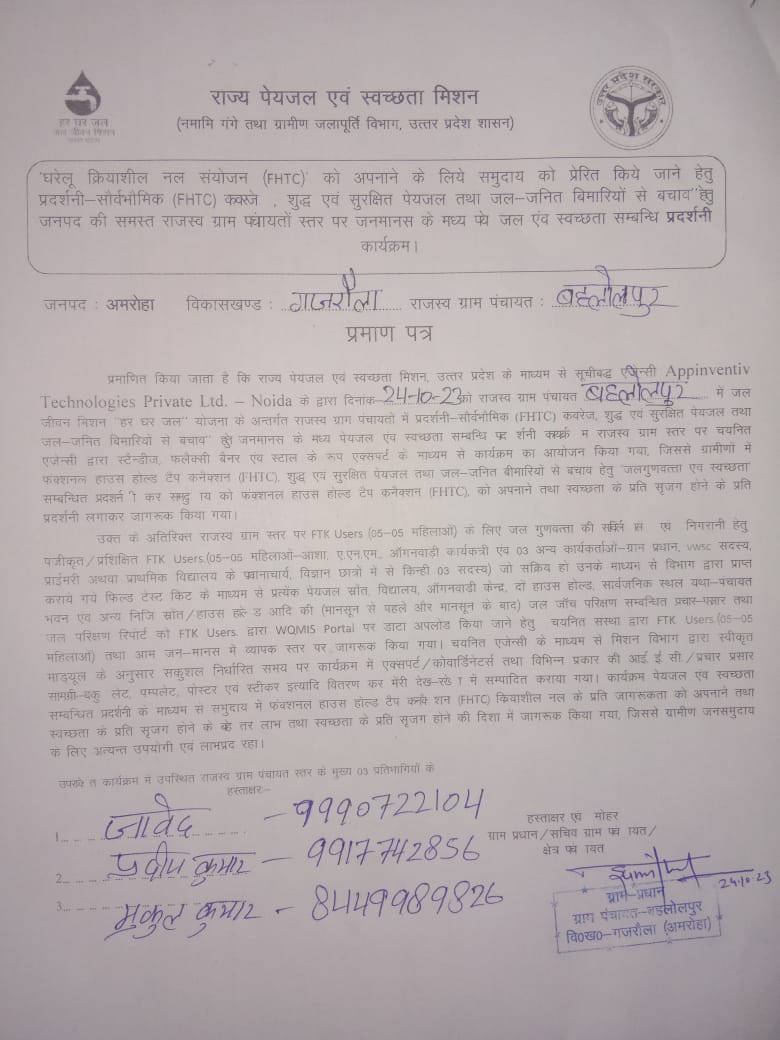 हर घर जल
जल जीवन मिशन
उत्तर प्रदेश सरकार
राज्य पेयजल एवं स्वच्छता मिशन
(नमामि गंगे तथा ग्रामीण जलापूर्ति विभाग, उत्तर प्रदेश शासन)
'घरेलू क्रियाशील नल संयोजन (FHTC)' को अपनाने के लिये समुदाय को प्रेरित किये जाने हेतु
प्रदर्शनी–सौर्वभौमिक (FHTC) कवरेज , शुद्ध एवं सुरक्षित पेयजल तथा जल–जनित बिमारियों से बचाव" हेतु
जनपद की समस्त राजस्व ग्राम पंचायतों स्तर पर जनमानस के मध्य पेय जल एंव स्वच्छता सम्बन्धि प्रदर्शनी
कार्यक्रम।
जनपद : अमरोहा विकासखण्ड : गजरौला राजस्व ग्राम पंचायत : बहलोलपुर
प्रमाण पत्र
प्रमाणित किया जाता है कि राज्य पेयजल एवं स्वच्छता मिशन, उत्तर प्रदेश के माध्यम से सूचीबद्ध एजेन्सी Appinventiv
Technologies Private Ltd. – Noida के द्वारा दिनांक 24-10-23 को राजस्व ग्राम पंचायत बहलोलपुर में जल
जीवन मिशन "हर घर जल" योजना के अन्तर्गत राजस्व ग्राम पंचायतों में प्रदर्शनी–सौर्वभौमिक (FHTC) कवरेज, शुद्ध एवं सुरक्षित पेयजल तथा
जल–जनित बिमारियों से बचाव" हेतु जनमानस के मध्य पेयजल एंव स्वच्छता सम्बन्धि प्रदर्शनी कार्यक्रम में राजस्व ग्राम स्तर पर चयनित
एजेन्सी द्वारा स्टेन्डीज, फलैक्सी बैनर एंव स्टाल के रूप एक्सपर्ट के माध्यम से कार्यक्रम का आयोजन किया गया, जिससे ग्रामीणों में
फंक्शनल हाउस होल्ड टैप कनैक्शन (FHTC), शुद्ध एवं सुरक्षित पेयजल तथा जल–जनित बीमारियों से बचाव हेतु "जलगुणवत्ता एवं स्वच्छता"
सम्बन्धित प्रदर्शनी कर समुदाय को फंक्शनल हाउस होल्ड टैप कनैक्शन (FHTC), को अपनाने तथा स्वच्छता के प्रति सृजग होने के प्रति
प्रदर्शनी लगाकर जागरूक किया गया।
उक्त के अतिरिक्त राजस्व ग्राम स्तर पर FTK Users (05–05 महिलाओं) के लिए जल गुणवत्ता की एवं निगरानी हेतु
पंजीकृत/प्रशिक्षित FTK Users.(05–05 महिलाओं–आशा, ए.एन.एम., ऑगनवाड़ी कार्यकत्री एंव 03 अन्य कार्यकर्ताओं–ग्राम प्रधान, vwsc सदस्य,
प्राईमरी अथवा प्राथमिक विद्यालय के प्रधानाचार्य, विज्ञान छात्रों में से किन्ही 03 सदस्य) जो सक्रिय हो उनके माध्यम से विभाग द्वारा प्राप्त
कराये गये फिल्ड टेस्ट किट के माध्यम से प्रत्येक पेयजल स्रोत, विद्यालय, ऑगनवाडी केन्द्र, दो हाउस होल्ड, सार्वजनिक स्थल यथा–पंचायत
भवन एंव अन्य निजि स्रोत/हाउस होल्ड आदि की (मानसून से पहले और मानसून के बाद) जल जॉच परिक्षण सम्बन्धित प्रचार–प्रसार तथा
जल परिक्षण रिपोर्ट को FTK Users. द्वारा WQMIS Portal पर डाटा अपलोड किया जाने हेतु चयनित संस्था द्वारा FTK Users.(05–05
महिलाओं) तथा आम जन–मानस में व्यापक स्तर पर जागरूक किया गया। चयनित एजेन्सी के माध्यम से मिशन विभाग द्वारा स्वीकृत
माड्यूल के अनुसार सकुशल निर्धारित समय पर कार्यक्रम में एक्सपर्ट/कोवार्डिनेटर्स तथा विभिन्न प्रकार की आई.ई.सी./प्रचार प्रसार
सामग्री–बुकलेट, पम्पलेट, पोस्टर एवं स्टीकर इत्यादि वितरण कर मेरी देख–रेख में सम्पादित कराया गया। कार्यक्रम पेयजल एंव स्वच्छता
सम्बन्धित प्रदर्शनी के माध्यम से समुदाय में फंक्शनल हाउस होल्ड टैप कनैक्शन (FHTC) क्रियाशील नल के प्रति जागरूकता को अपनाने तथा
स्वच्छता के प्रति सृजग होने के लाभ तथा स्वच्छता के प्रति सृजग होने की दिशा में जागरूक किया गया, जिससे ग्रामीण जनसमुदाय
के लिए अत्यन्त उपयोगी एवं लाभप्रद रहा।
उपरोक्त कार्यक्रम में उपस्थित राजस्व ग्राम पंचायत स्तर के मुख्य 03 प्रतिभागियों के
हस्ताक्षर:–
1. जावेद – 9990722104
2. प्रदीप कुमार – 9917742856
3. मुकुल कुमार – 8449989826
हस्ताक्षर एवं मोहर
ग्राम प्रधान/सचिव ग्राम पंचायत/
क्षेत्र पंचायत
24.10.23
ग्राम–प्रधान
ग्राम पंचायत–बहलोलपुर
वि०ख०–गजरौला (अमरोहा)